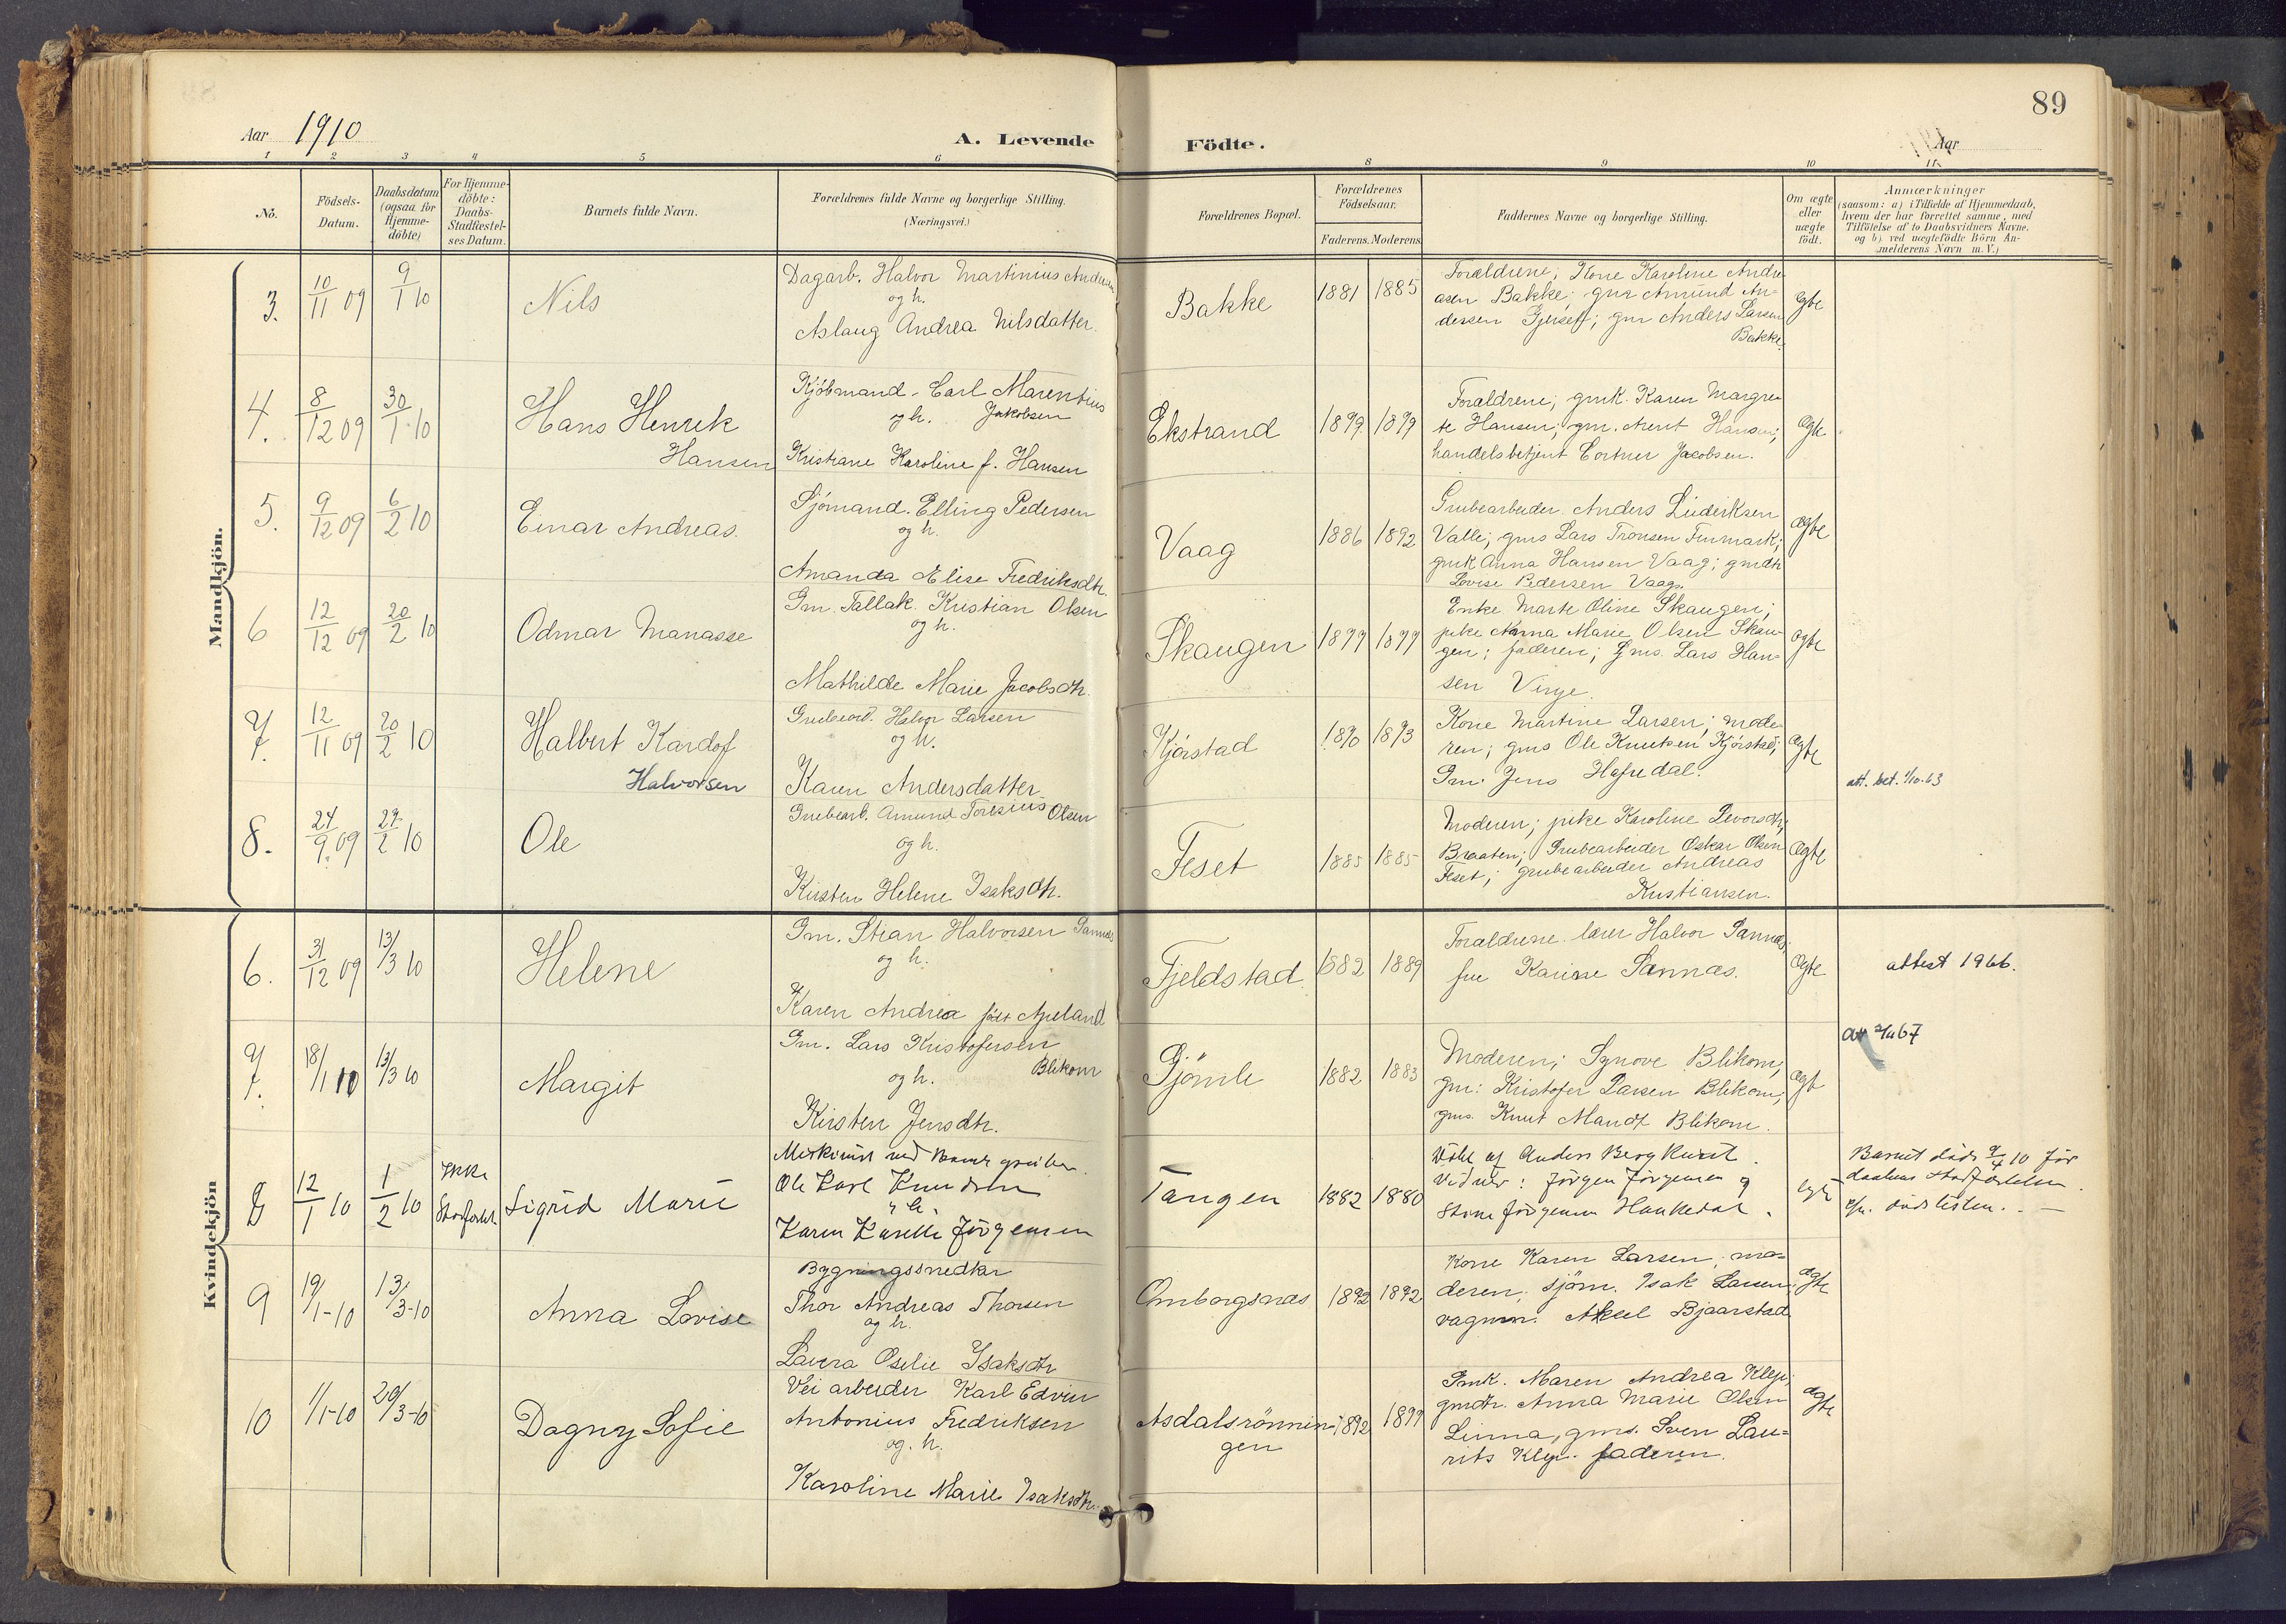 89
Aar 1910
A. Levende
Födte.
Aar
1 2 3 4 5 6 8 9 10 11
No.
Födsels-
Datum.
Daabsdatum
(ogsaa for
Hjemme-
döbte)
For Hjemme-
döbte:
Daabs-
Stadfæstel-
ses Datum.
Barnets fulde Navn.
Forældrenes fulde Navne og borgerlige Stilling.
(Næringsvei.)
Forældrenes Bopæl.
Forældrenes
Födselsaar.
Faderens. Moderens
Faddernes Navne og borgerlige Stilling.
Om ægte
eller
uægte
födt.
Anmærkninger
(saasom: a) i Tilfælde af Hjemmedaab,
hvem der har forrettet samme, med
Tilföielse af to Daabsvidners Navne,
og b) ved uægtefödte Börn An-
melderens Navn m. V.)
Mandkjön.
3.
10/11 09
9/1 10
Nils
Dagarb. Halvor Martinius Andersen
og h.
Aslaug Andrea Nilsdatter.
Bakke
1881
1885
Forældrene; Kone Karoline Andre-
asen Bakke; gmr Amund An-
dersen; gmr Anders Larsen
Bakke.
Ægte
4.
8/12 09
30/1 10
Hans Henrik
Hansen
Kjöbmand Carl Marentius
og h. Jakobsen
Kristiane Karoline f. Hansen
Ekstrand
1879
1879
Forældrene; gmk. Karen Margre-
te Hansen; gm. Arent Hansen;
handelsbetjent Jacobsen.
Ægte
5.
9/12 09
6/2 10
Einar Andreas.
Sjömand. Elling Pedersen
og h.
Amanda Elise Fredriksdtr.
Vaag
1886
1892
Grubearbeider Anders Luderiksen
Valle; gms Lars Tronsen Finmark;
gmk Anna Hansen Vaag; gmdtr
Lovise Pedersen Vaag.
Ægte
6
12/12 09
20/2 10
Odmar Manasse
Gm. Tallak Kristian Olsen
og h.
Mathilde Marie Jacobsdtr.
Skaugen
1877
1877
Enke Marte Oline Skaugen;
pike Anna Marie Olsen Skau-
gen; faderen; Gms. Lars Han-
sen Virge.
Ægte
7.
12/11 09
20/2 10
Halbert Kardof
Halvorsen
Grubearb. Halvor Larsen
og h.
Karen Andersdatter
Kjörstad
1870
1873
Kone Martine Larsen; mode-
ren; gms Ole Knutsen Kjörstad;
Gm. Jens Hafredal.
Ægte
att. bet. 1/10-63
8.
24/9 09
27/2 10
Ole
Grubearb. Amund Toresius Olsen
og h.
Kirsten Helene Isaksdtr.
Feset
1885
1885
Moderen; pike Karoline Levorsdtr,
Braaten; Grubearbeider Oskar Olsen
Feset; grubearbeider Andreas
Kristiansen.
Ægte
Kvindekjön
6.
31/12 09
13/3 10
Helene
Gm. Stian Halvorsen Sannæs
og h.
Karen Andrea födt Apeland
Fjeldstad
1882
1889
Forældrene. lærer Halvor Sannæs;
frue Karine Sannæs.
Ægte
attest 1966.
7.
18/1 10
13/3 10
Margit
Gm. Lars Kristofersen
og h. Blikom
Kirsten Jensdtr.
Gjömle
1882
1883
Moderen; Synove Blikom;
gm: Kristofer Larsen Blikom;
gms. Knut Mandt Blikom.
Ægte
8
12/1 10
1/2 10
Ikke
Stadfæstet
Sigrid Marie
Ole Karl Knudsen
og h.
Karen Karelie Jörgensen
Tangen
1882
1880
Döbt af Anders Berg Kurit.
Vidner: Jörgen Jörgensen og
Stine Jörgensen Haukedal.
Ægte
Barnet döde 9/4 10 för
daabens stadfæstelse.
dödslisten.
9
19/1-10
13/3-10
Anna Lovise
Bygningssnedker
Thor Andreas Thorsen
og h.
Laura Oselie Isaksdtr
Omborgsnæs
1892
1892
Kone Karen Larsen; mo-
deren; sjöm. Isak Larsen;
vognm. Aksel Bjaarstad
ægte
10
1/1-10
20/3-10
Dagny Sofie
Vei arbeider Karl Edvin
Antonius Fredriksen
og. h.
Karoline Marie Isaksdtr.
Asdalsrönnin-
gen
1892
1899
Gmk. Maren Andrea Klep;
gmdtr. Anna Marie Olsen
Linna, gms. Sven Lau-
rits Klep. faderen.
ægte